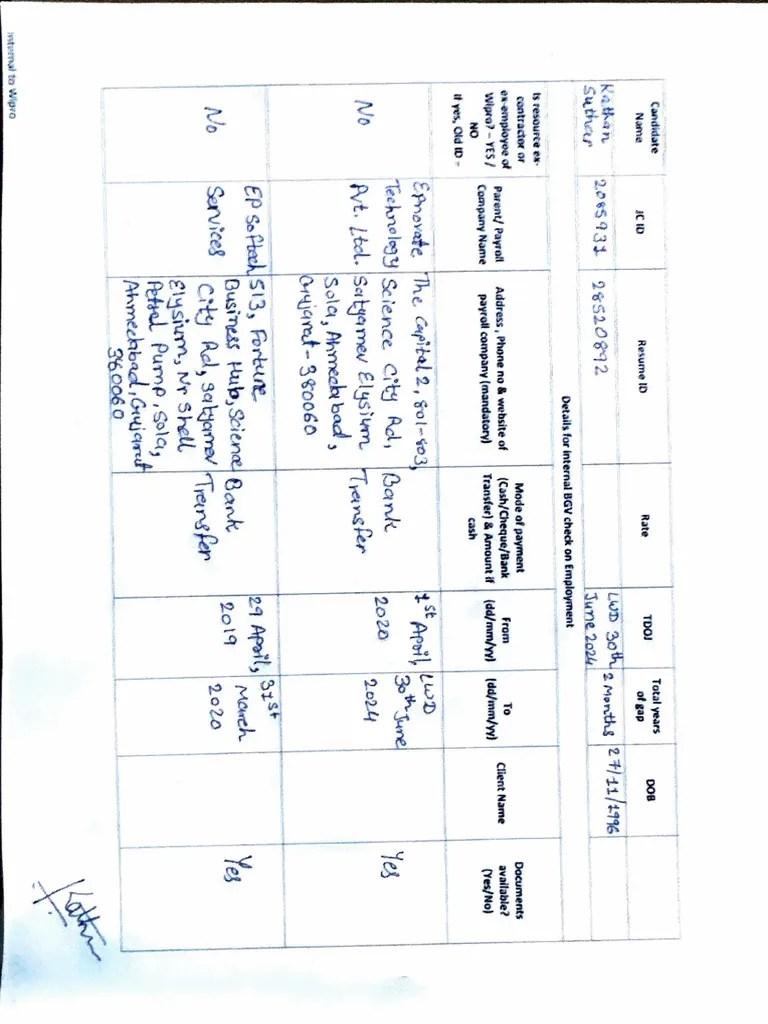 Candidate Name
JC ID
Resume ID
Rate
TDOJ
Total years of gap
DOB
Kathan
Suthar
2085931
28520892
LWD 30th
June 2024
2 Months
27/11/1996
Details for internal BGV check on Employment
Is resource ex-
contractor or
ex-employee of
Wipro? – YES /
NO
If yes, Old ID –
Parent/ Payroll
Company Name
Address , Phone no & website of
payroll company (mandatory)
Mode of payment
(Cash/Cheque/Bank
Transfer) & Amount if
cash
From
(dd/mm/yy)
To
(dd/mm/yy)
Client Name
Documents
available?
(Yes/No)
No
Epnovate
Technology
Pvt. Ltd.
The Capital 2, 801-803,
Science City Rd,
Satyamev Elysium
Sola, Ahmedabad,
Gujarat - 380060
Bank
Transfer
1st April,
2020
LWD
30th June
2024
Yes
No
EP Softech
Services
513, Fortune
Business Hub, Science
City Rd, Satyamev
Elysium, Nr Shell
Petrol Pump, Sola,
Ahmedabad, Gujarat
380060
Bank
Transfer
29 April,
2019
31st
March
2020
Yes
Kathan
Internal to Wipro